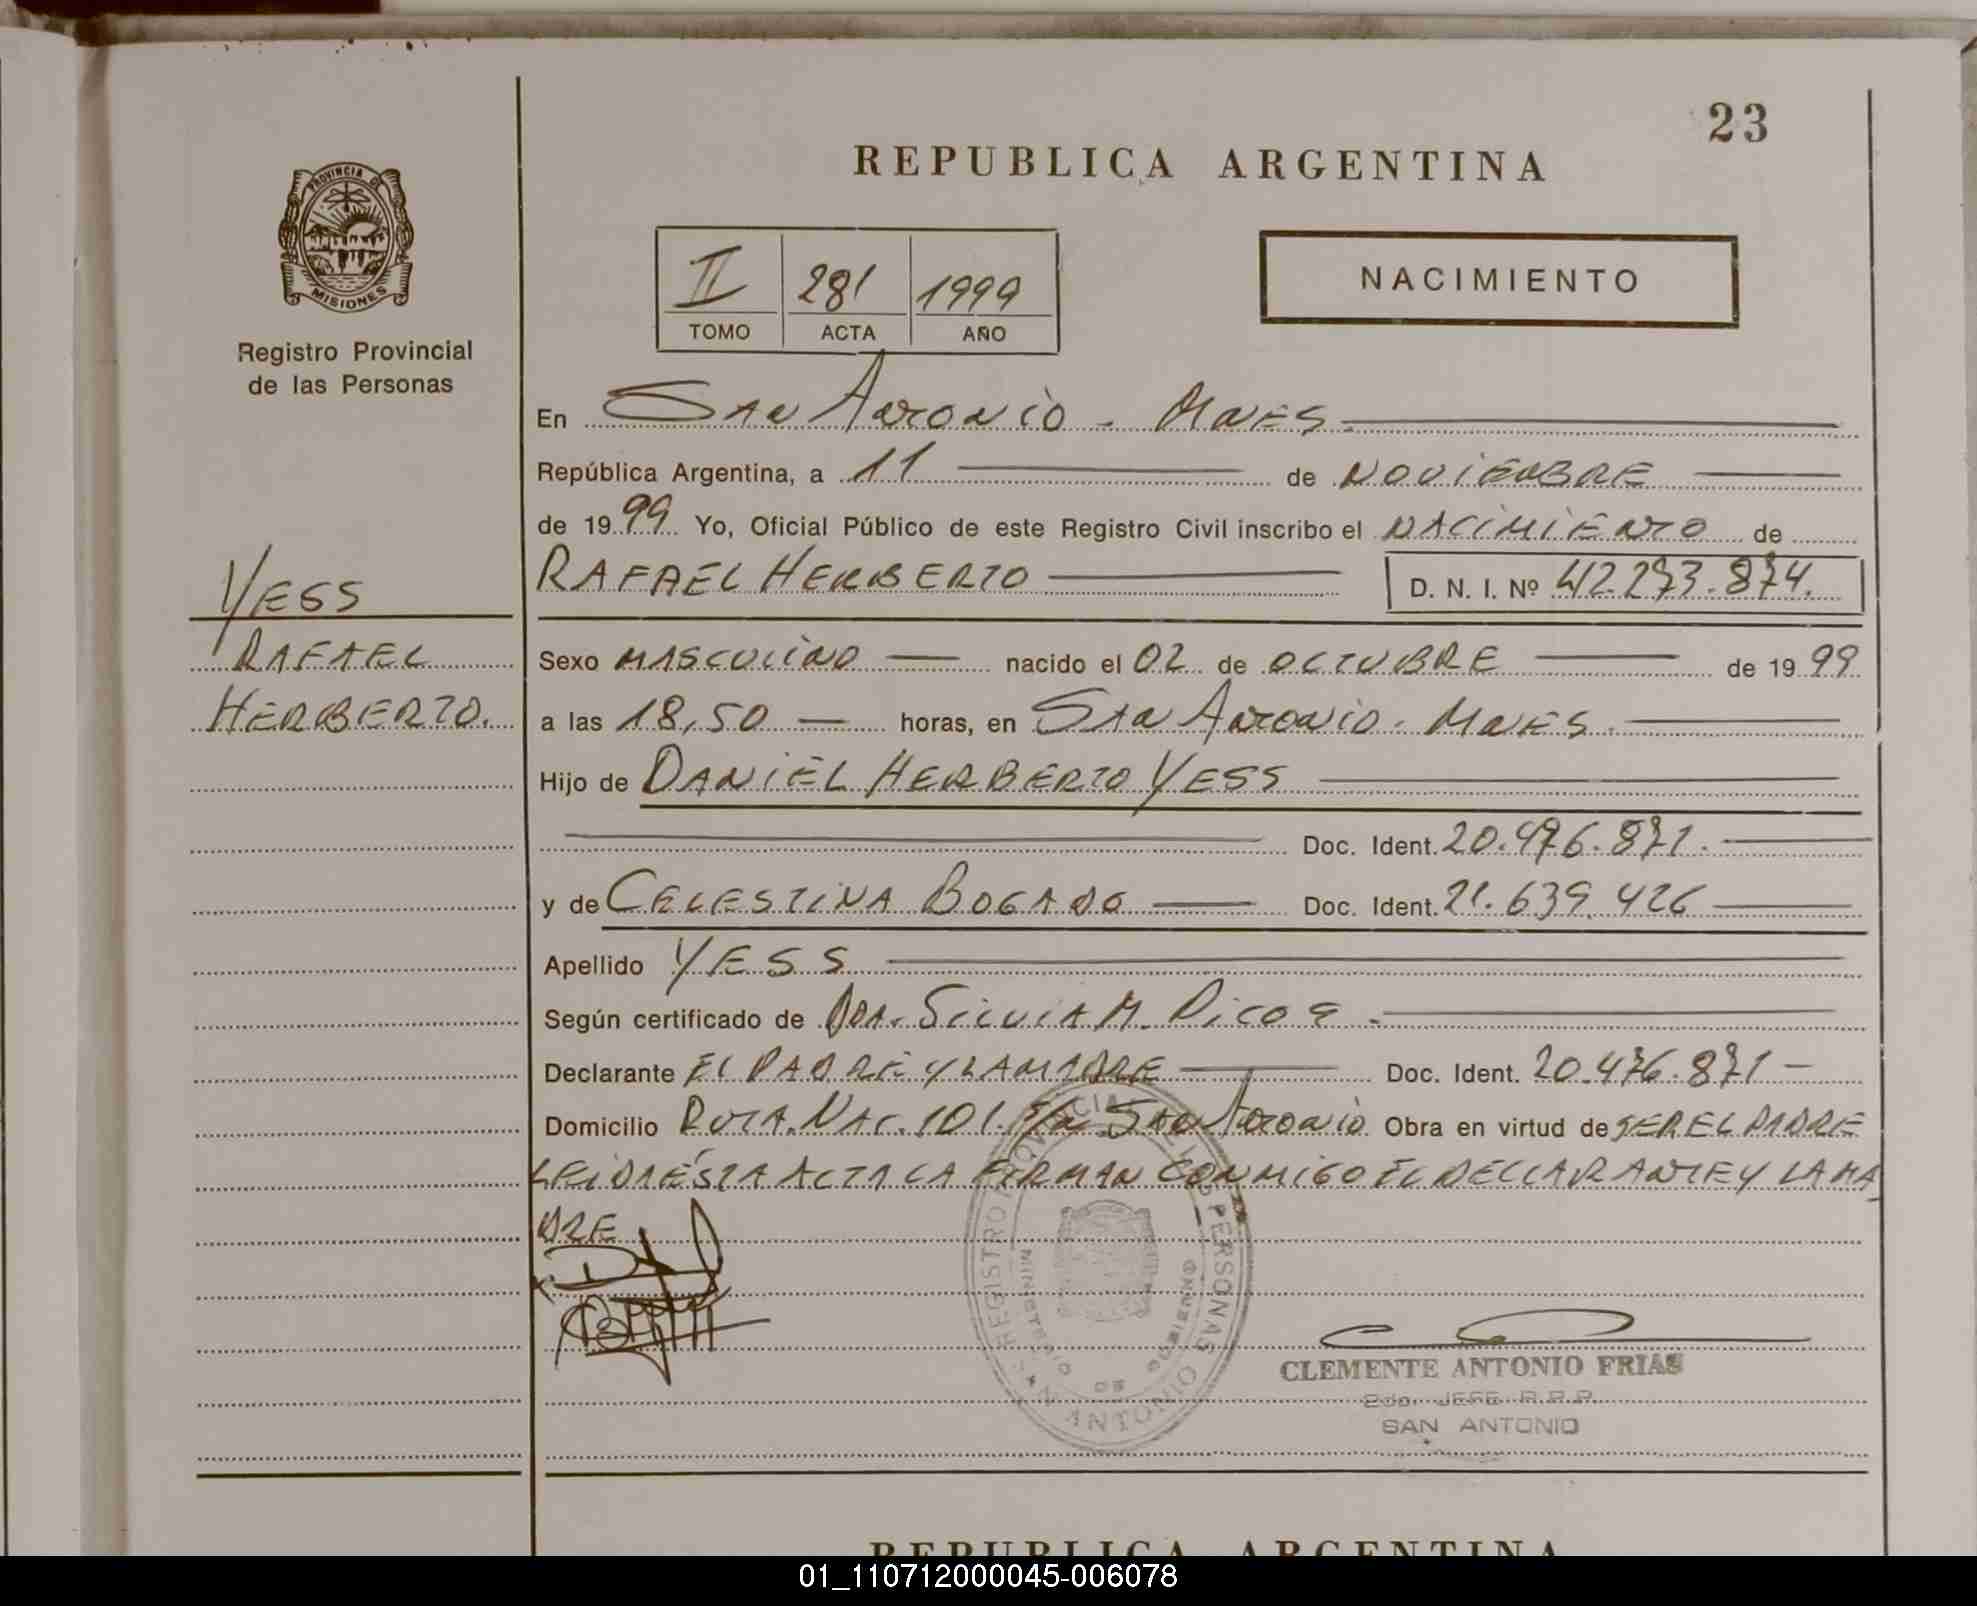 23
REPUBLICA ARGENTINA
PROVINCIA DE
MISIONES
Registro Provincial
de las Personas
II 281 1999
TOMO ACTA AÑO
NACIMIENTO
En SAN ANTONIO - MNES.
República Argentina, a 11 de NOVIEMBRE
de 1999 Yo, Oficial Público de este Registro Civil inscribo el NACIMIENTO de
RAFAEL HERBERTO D. N. I. Nº 42.273.874.
YESS
RAFAEL
HERBERTO.
Sexo MASCULINO nacido el 02 de OCTUBRE de 1999
a las 18,50 horas, en SAN ANTONIO - MNES.
Hijo de DANIEL HERBERTO YESS
Doc. Ident. 20.476.871.
y de CELESTINA BOGADO Doc. Ident. 21.639.426
Apellido YESS
Según certificado de DRA. SILVIA M.
Declarante EL PADRE Y LA MADRE Doc. Ident. 20.476.871 -
Domicilio RUTA. NAC. 101. S/N SAN ANTONIO Obra en virtud de SER EL PADRE
LEIDA ÉSTA ACTA LA FIRMAN CONMIGO EL DECLARANTE Y LA MA
DRE
REGISTRO PROVINCIAL DE LAS PERSONAS
MINISTERIO DE GOBIERNO
SAN ANTONIO
CLEMENTE ANTONIO FRIAS
2do. JEFE R.P.P.
SAN ANTONIO
REPUBLICA ARGENTINA
01_110712000045-006078